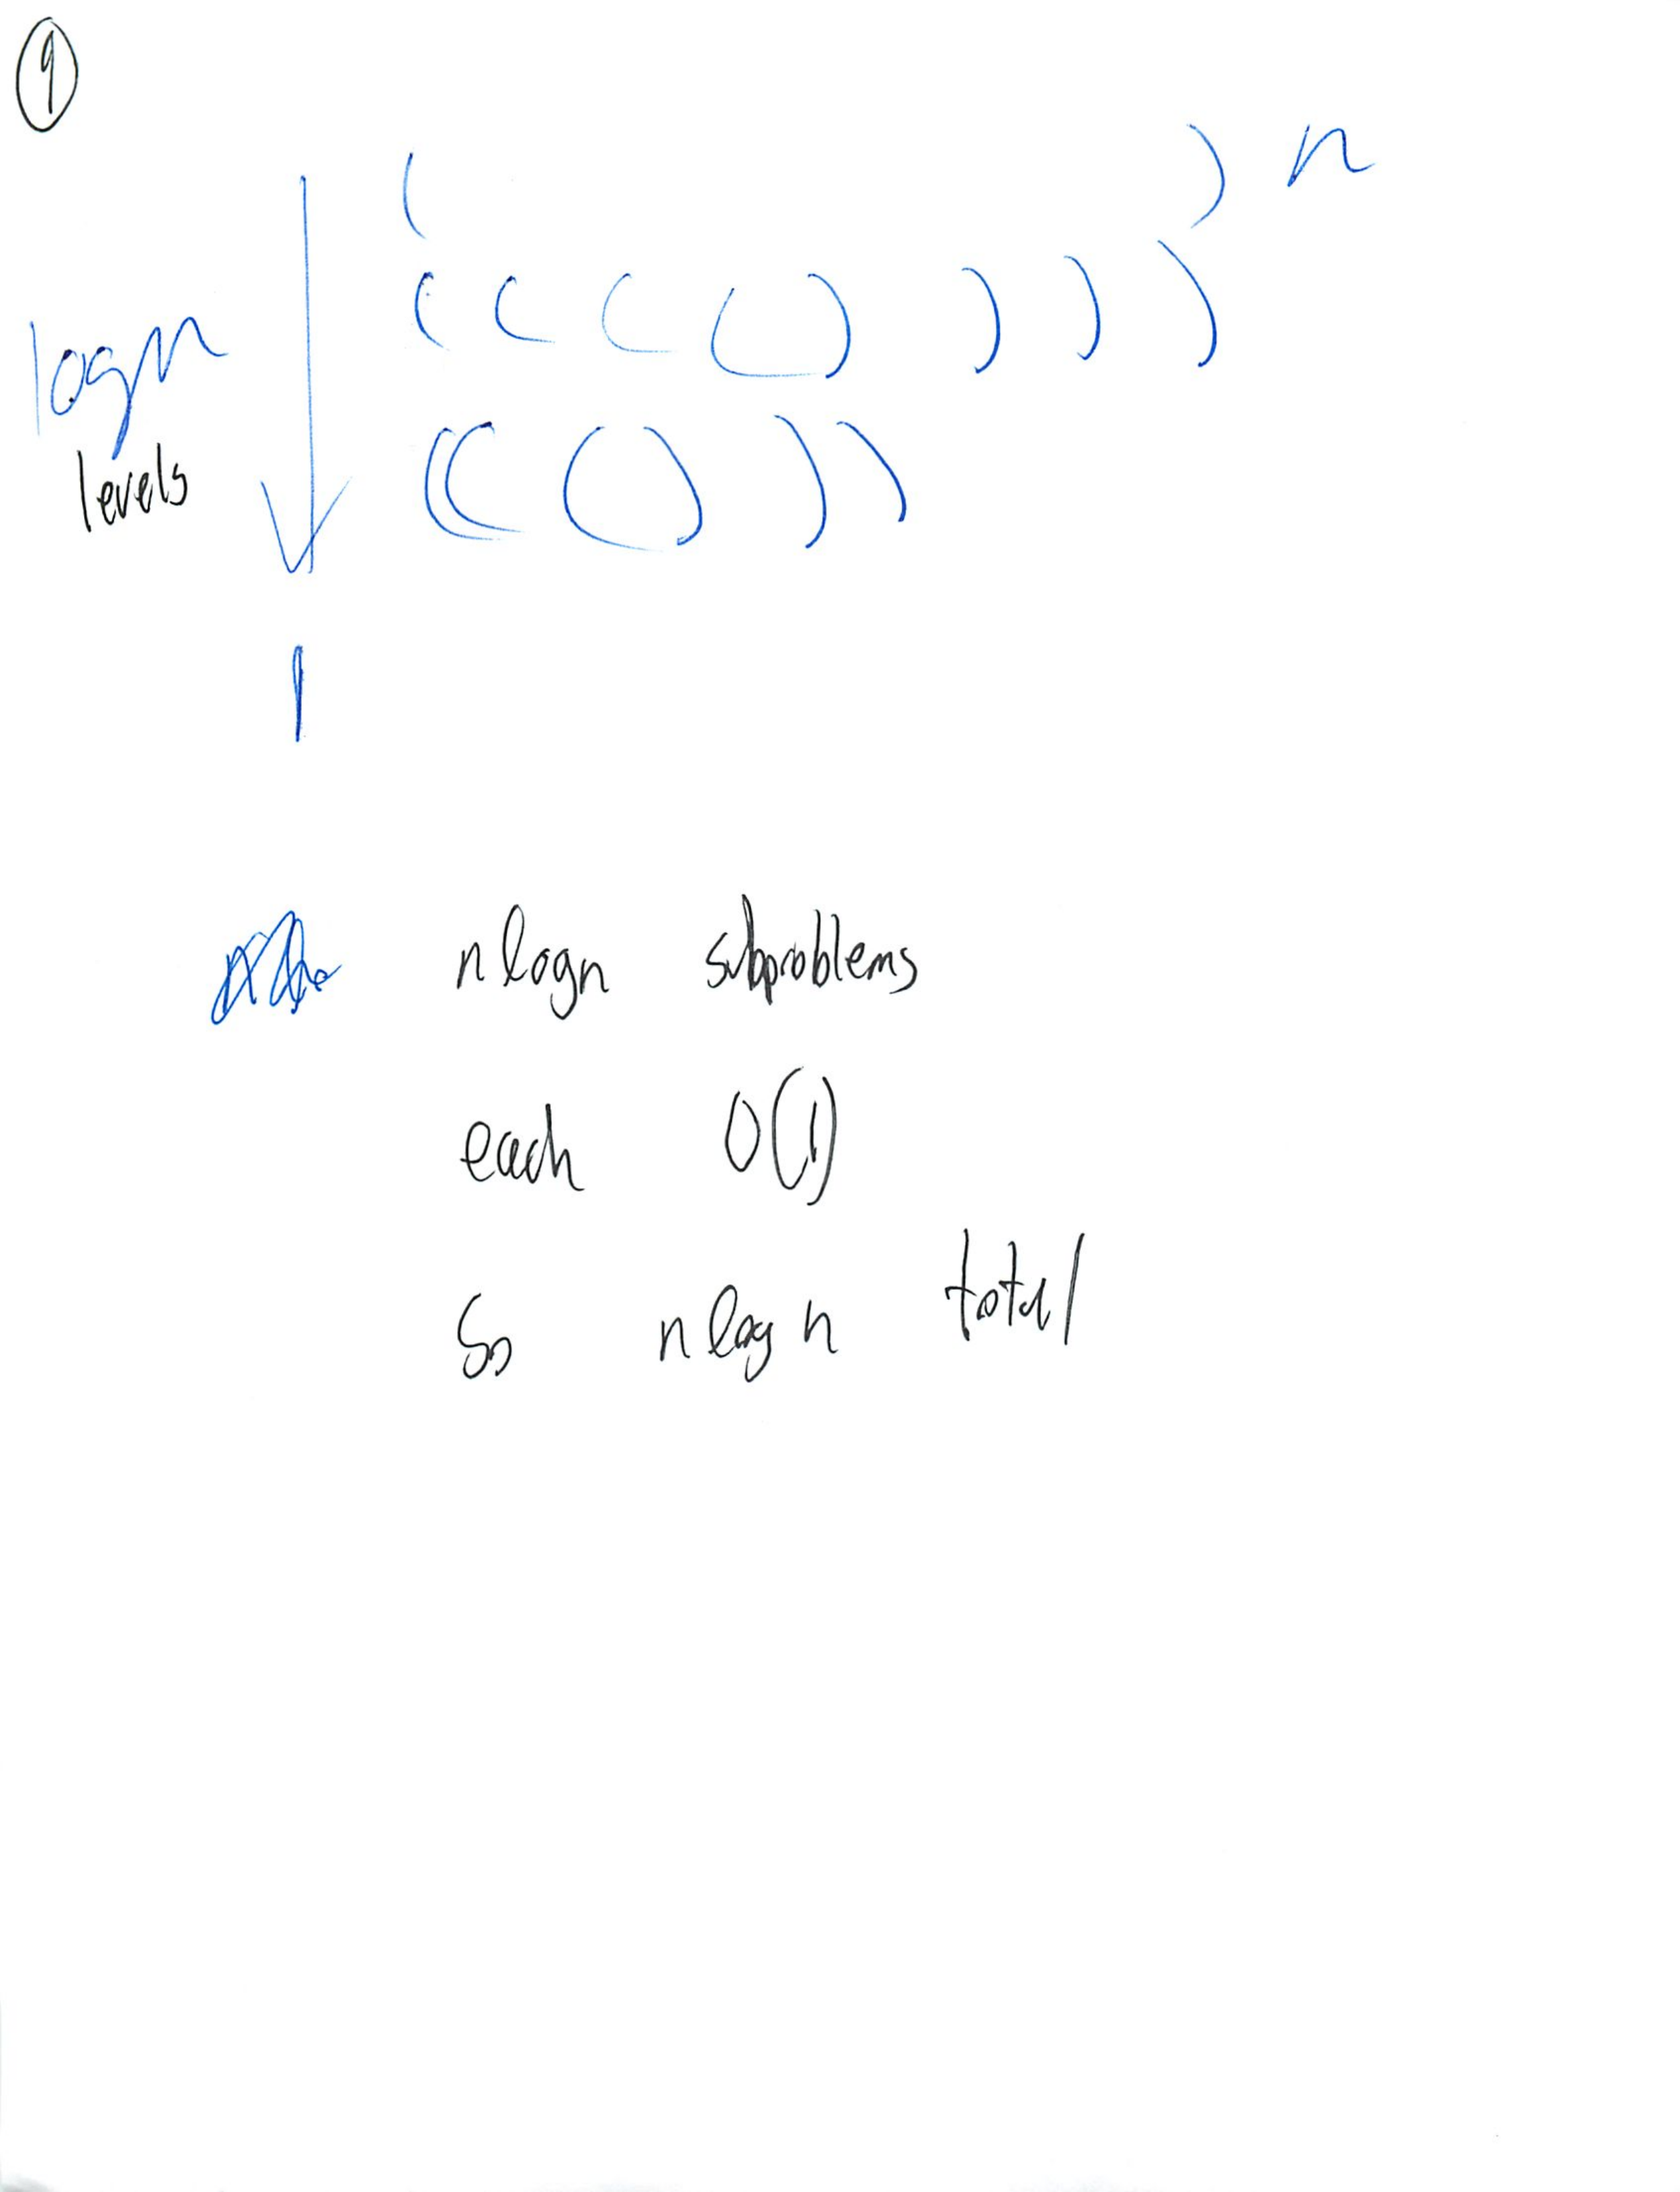 9
( ) n
( ( ( ( ) ) ) )
logn
levels
( ( ( ) ) )
1
nlogn subproblems
each O(1)
So nlogn total